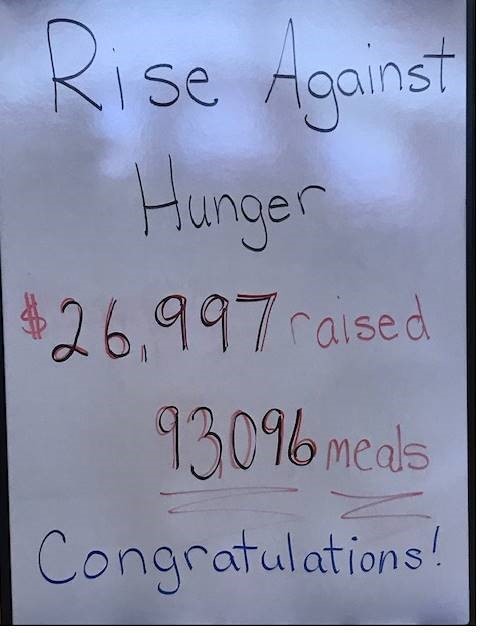 Rise Against
Hunger
$26,997 raised
93,096 meals
Congratulations!